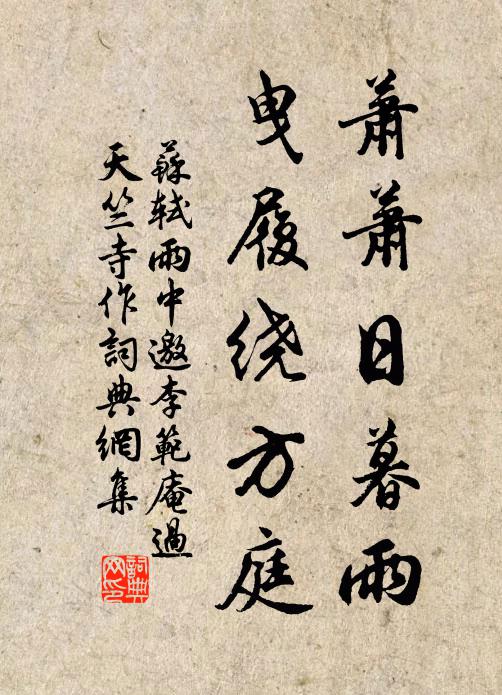 蕭蕭日暮雨
曳履绕方庭
蘇軾雨中邀李範庵過
天竺寺作詞典網集
詞典
网印